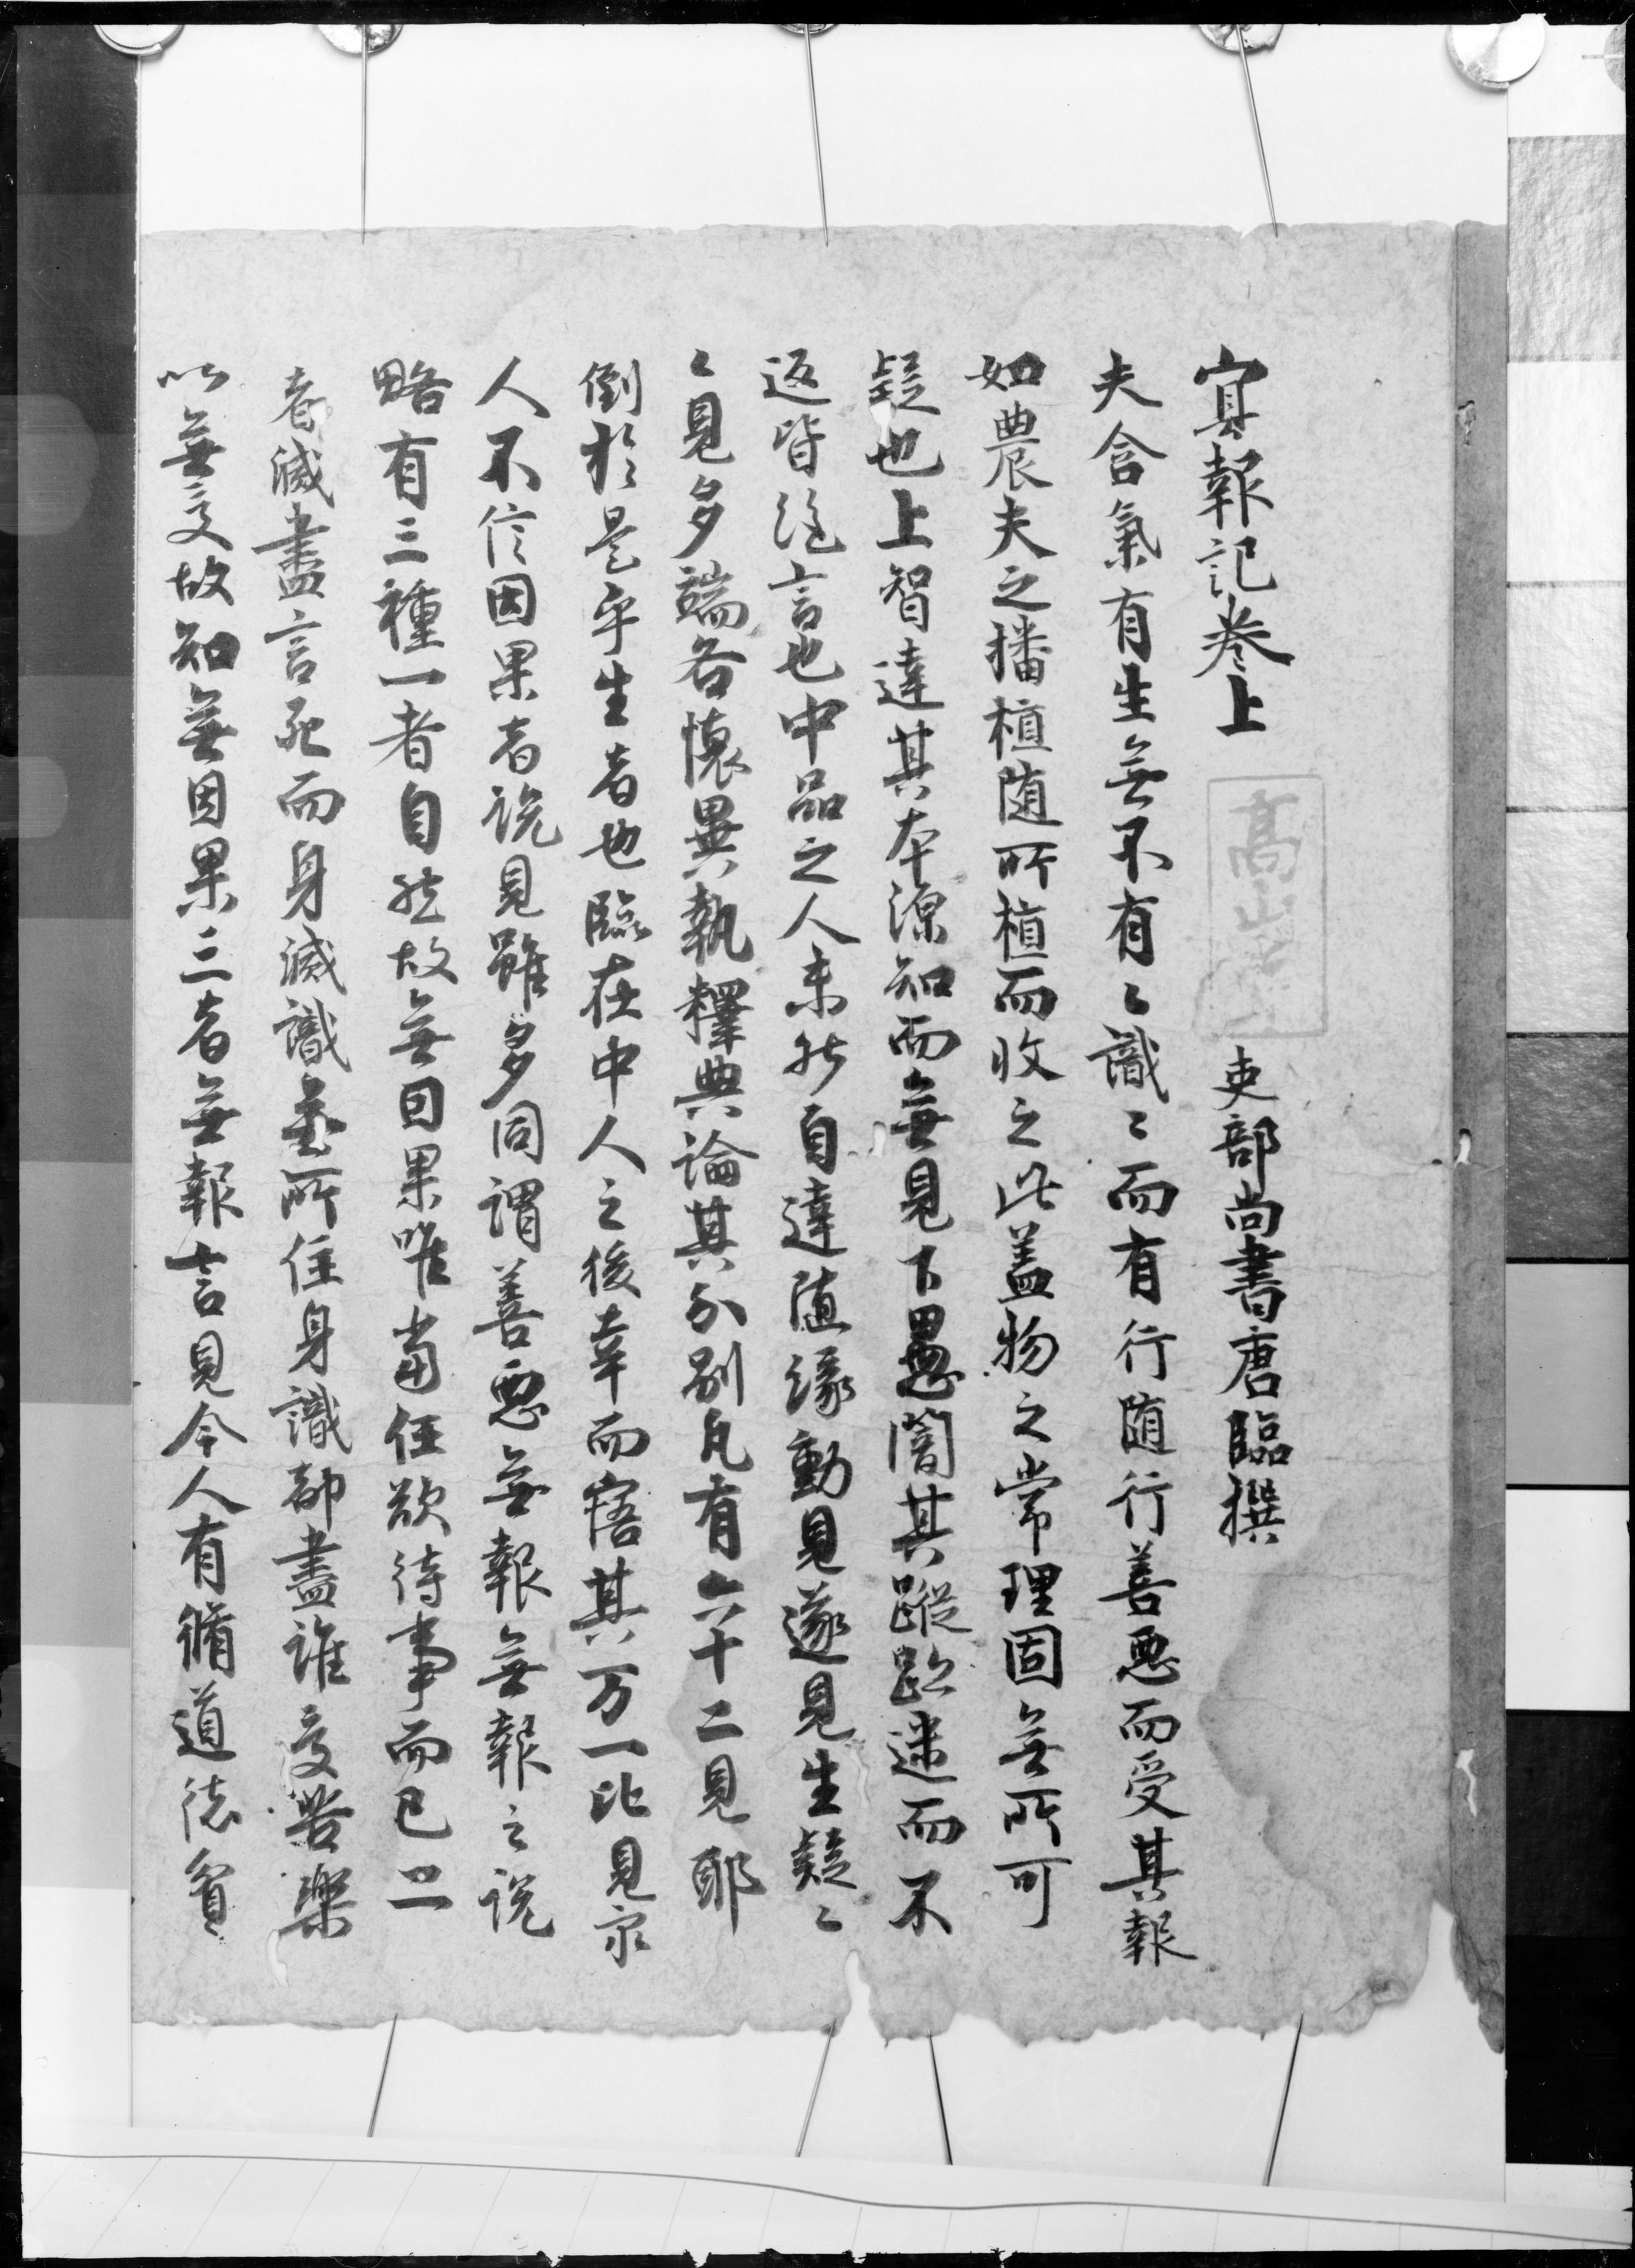 冥報記卷上 高山寺 吏部尚書唐臨撰
夫含氣有生無不有〻識〻而有行随行善惡而受其報
如農夫之播植随所植而收之此盖物之常理固無所可
疑也上智達其本源知而無見下愚闇其蹤跡迷而不
返皆絶言也中品之人未能自達随緣動見逐見生疑〻
〻見多端各懐異執釋典論其分別凡有六十二見耶
倒於是乎生者也臨在中人之後幸而寤其万一比見衆
人不信因果者説見雖多同謂善惡無報無報之説
略有三種一者自然故無因果唯當任欲待事而已二
者滅盡言死而身滅識無所住身識都盡誰受苦樂
以無受故知無因果三者無報言見今人有脩道德貧